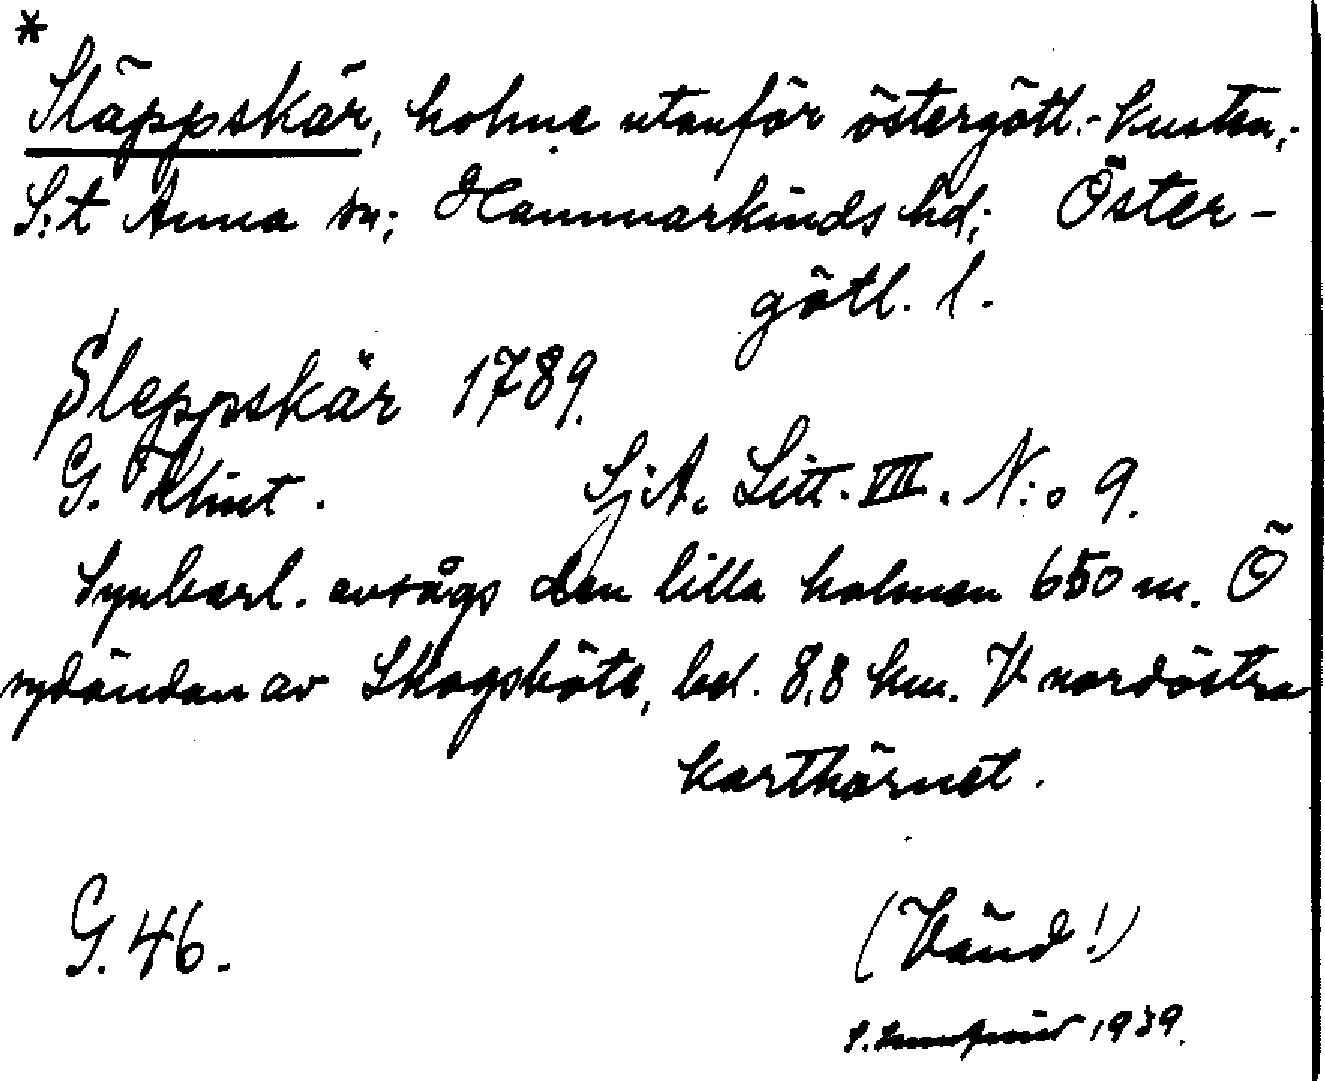 *
Släppskär, holme utanför östergötl.-kusten,
S:t Anna sn; Hammarkinds hd; Öster-
götl. l.
Sleppskär 1789.
G. Klint. SjA. Litt. VIII. N:o 9.
Synbarl. avsågs den lilla holmen 650 m. Ö
sydändan av Skogsböte, bel. 8,8 km. V nordöstra
karthörnet.
G. 46.
(Vänd!)
1939.